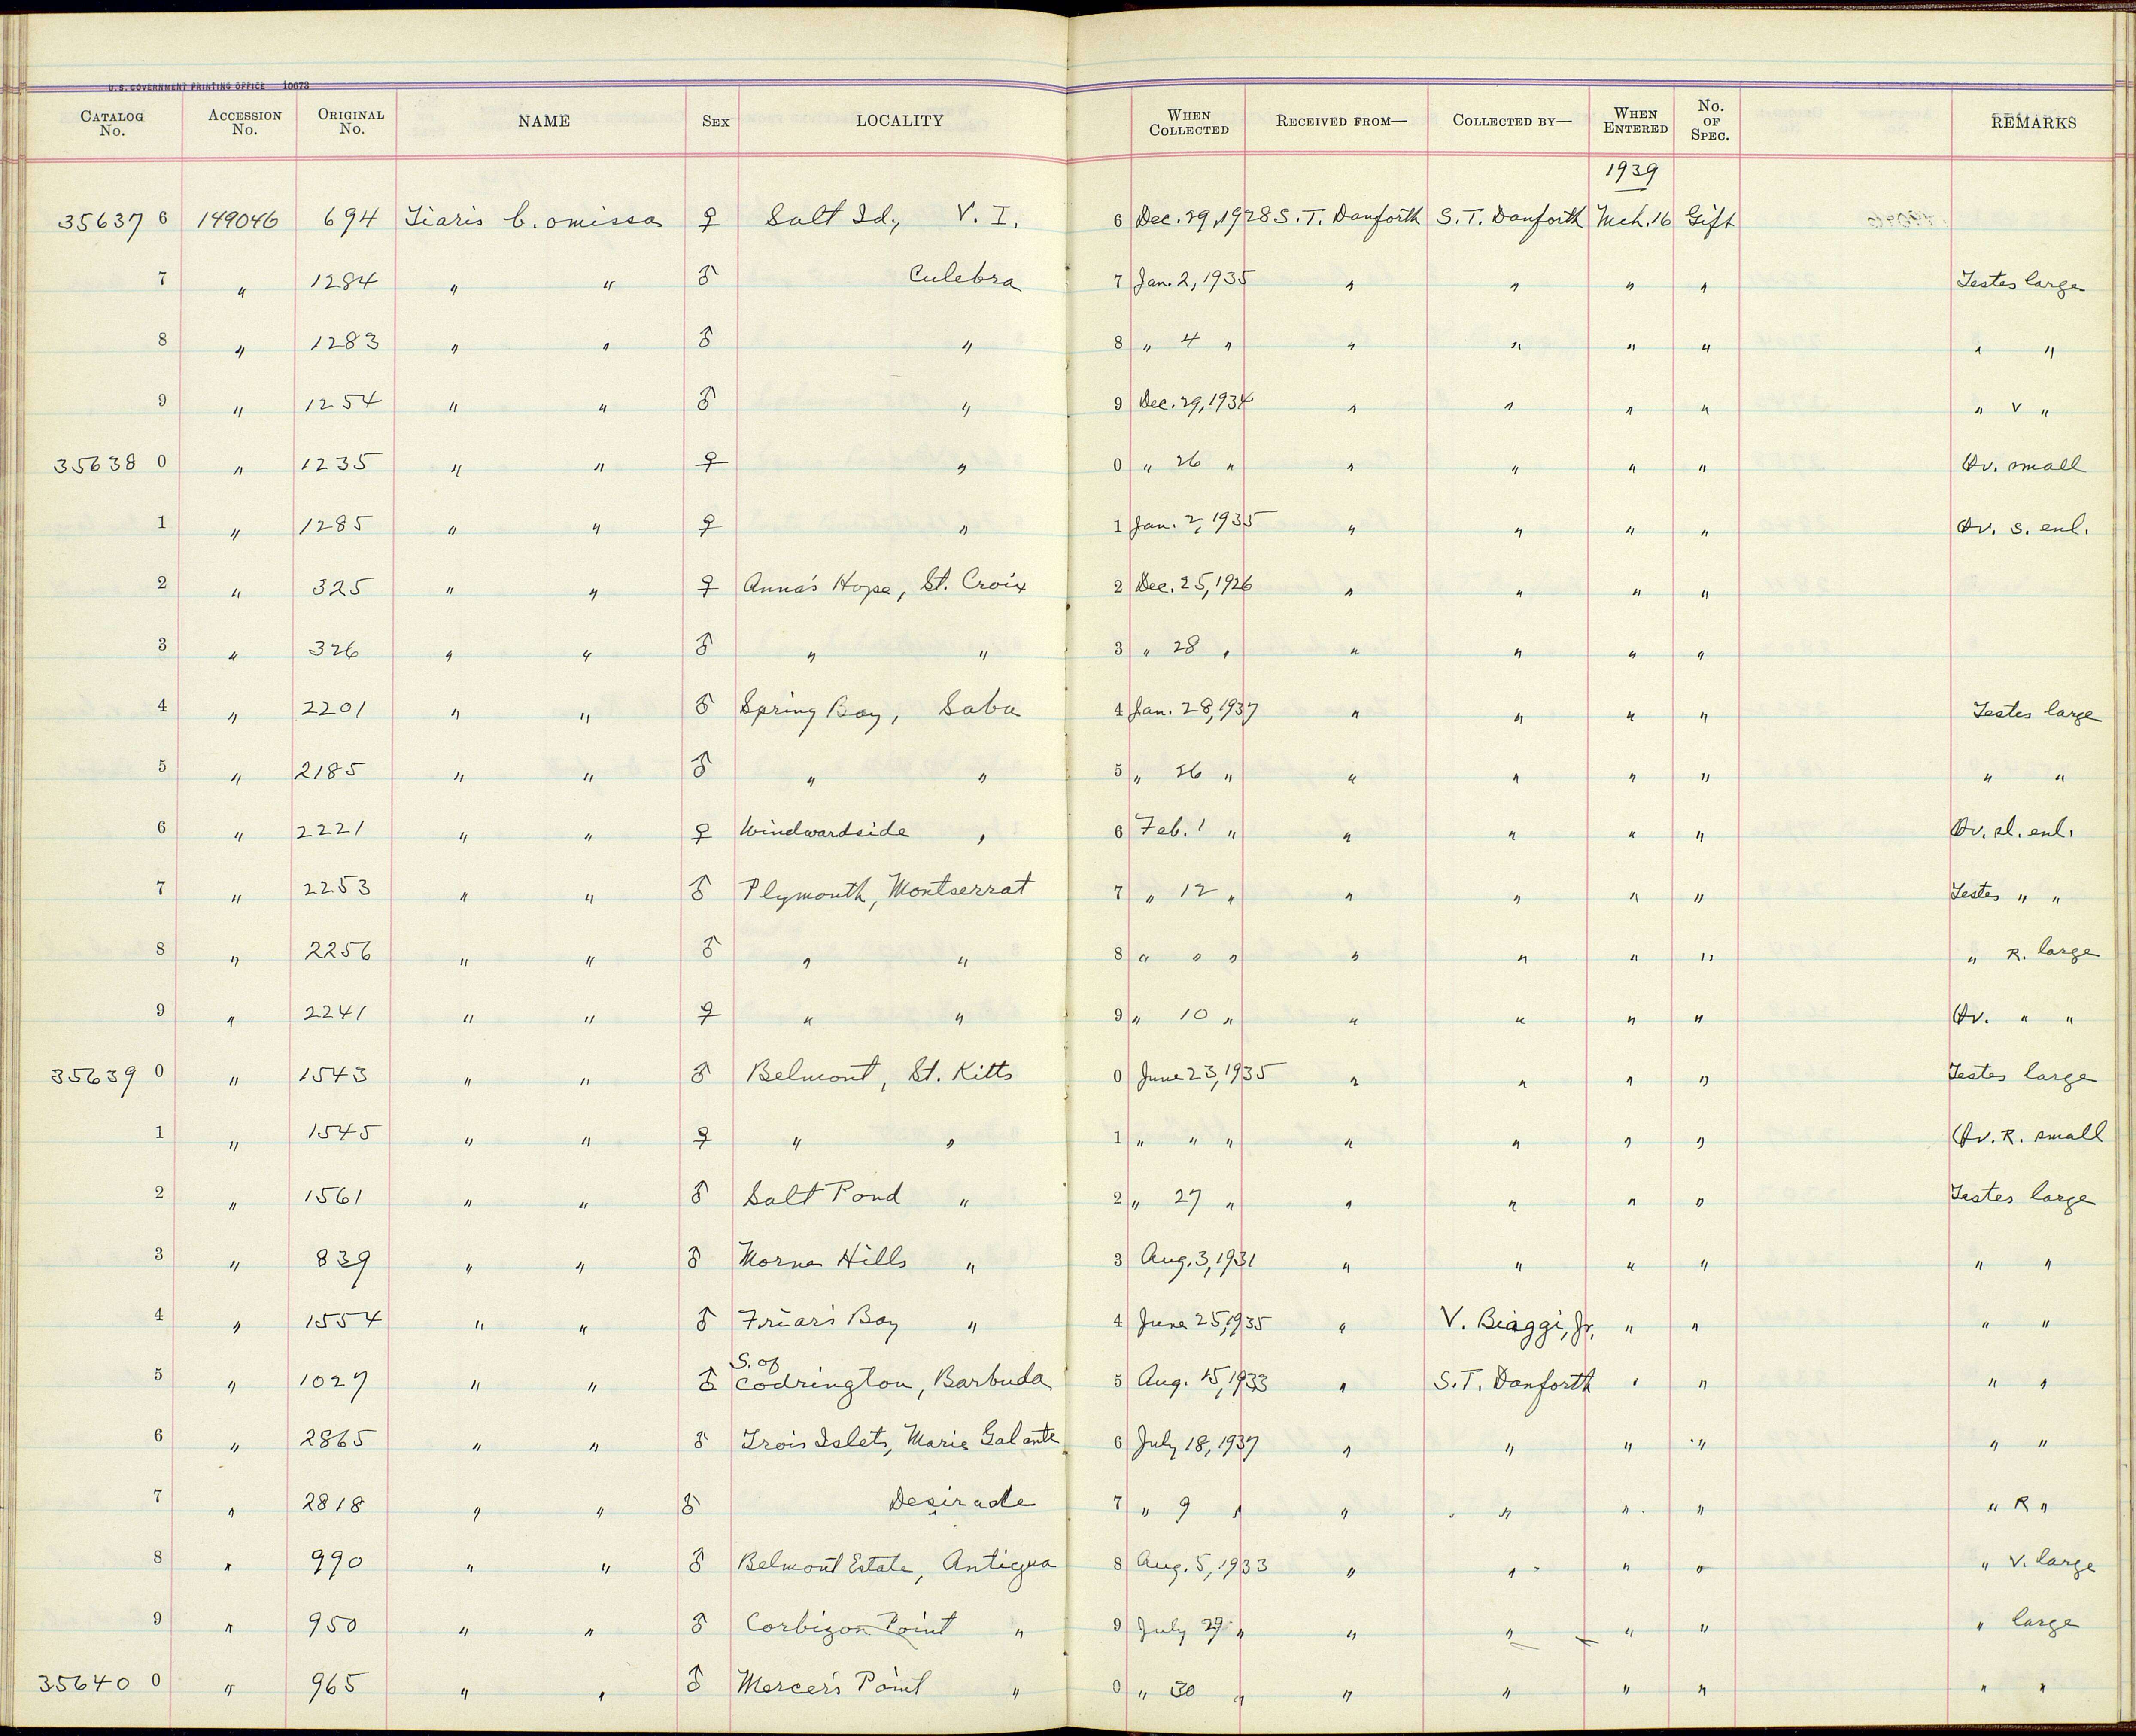 U.S. GOVERNMENT PRINTING OFFICE 10673
CATALOG No. ACCESSION No. ORIGINAL No. NAME SEX LOCALITY WHEN COLLECTED RECEIVED FROM— COLLECTED BY— WHEN ENTERED No. OF SPEC. REMARKS
1939
35637 6 149046 694 Tiaris b. omissa ♀ Salt Id, V. I. 6 Dec. 29, 1928 S. T. Danforth S. T. Danforth Mch. 16 Gift
7 " 1284 " " ♂ Culebra 7 Jan. 2, 1935 " " " " Testes large
8 " 1283 " " ♂ " 8 " 4 " " " " " " "
9 " 1254 " " ♂ " 9 Dec. 29, 1934 " " " " " V "
35638 0 " 1235 " " ♀ " 0 " 26 " " " " " Ov. small
1 " 1285 " " ♀ " 1 Jan. 2, 1935 " " " " Ov. s. enl.
2 " 325 " " ♀ Anna's Hope, St. Croix 2 Dec. 25, 1926 " " " "
3 " 326 " " ♂ " " 3 " 28 " " " " "
4 " 2201 " " ♂ Spring Bay, Saba 4 Jan. 28, 1937 " " " " Testes large
5 " 2185 " " ♂ " " 5 " 26 " " " " " " "
6 " 2221 " " ♀ Windwardside " 6 Feb. 1 " " " " " Ov. sl. enl.
7 " 2253 " " ♂ Plymouth, Montserrat 7 " 12 " " " " " Testes " "
8 " 2256 " " ♂ " " 8 " " " " " " " " R. large
9 " 2241 " " ♀ " " 9 " 10 " " " " " Ov. " "
35639 0 " 1543 " " ♂ Belmont, St. Kitts 0 June 23, 1935 " " " " Testes large
1 " 1545 " " ♀ " " 1 " " " " " " " Ov. R. small
2 " 1561 " " ♂ Salt Pond " 2 " 27 " " " " " Testes large
3 " 839 " " ♂ Morne Hills " 3 Aug. 3, 1931 " " " " " "
4 " 1554 " " ♂ Friar's Bay " 4 June 25, 1935 " V. Biaggi, Jr. " " " "
5 " 1027 " " ♂ S. of Codrington, Barbuda 5 Aug. 15, 1933 " S. T. Danforth " " " "
6 " 2865 " " ♂ Trois Islets, Marie Galante 6 July 18, 1937 " " " " " "
7 " 2818 " " ♂ Desirade 7 " 9 " " " " " " R "
8 " 990 " " ♂ Belmont Estate, Antigua 8 Aug. 5, 1933 " " " " " V. large
9 " 950 " " ♂ Corbizon Point " 9 July 29 " " " " " " large
35640 0 " 965 " " ♂ Mercer's Point " 0 " 30 " " " " " " "